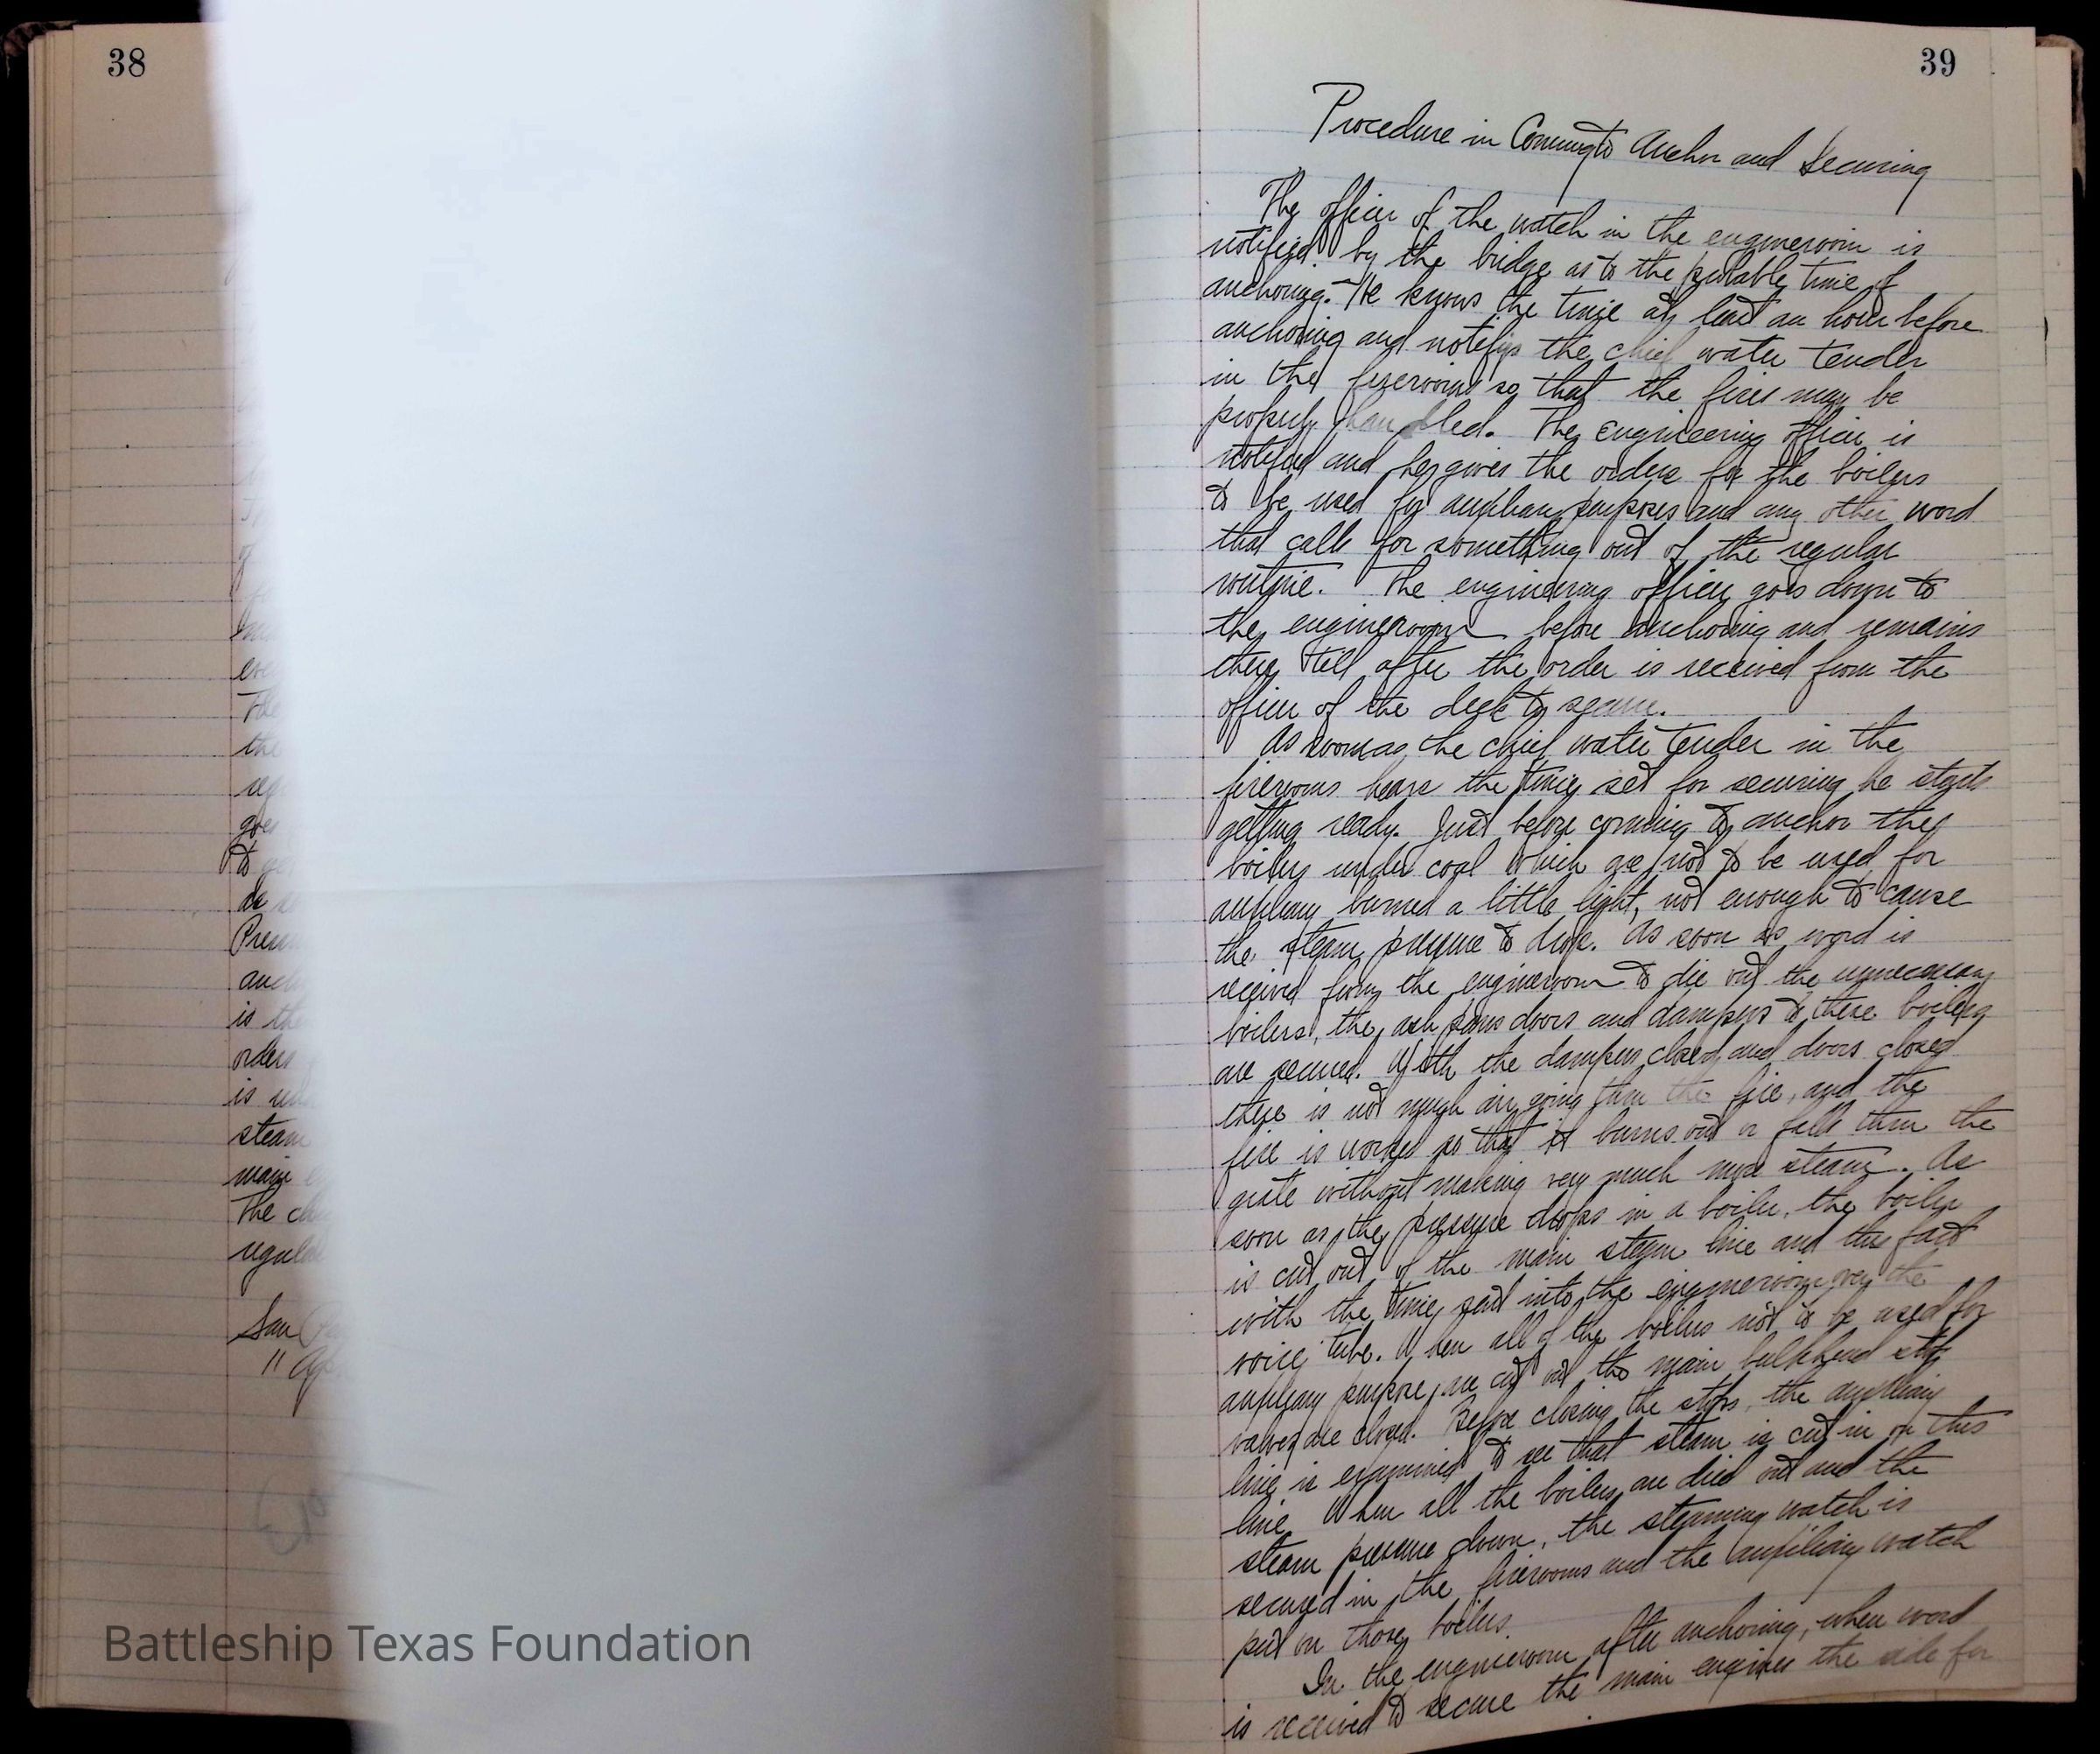 38
In
eve
The
the
goes
to
de
Presu
anch
is the
orders
is
steam
main
The ch
regula
San
11 Ap
Battleship Texas Foundation
39
Procedure in Coming to Anchor and Securing
The officer of the watch in the engineroom is
notified by the bridge as to the probable time of
anchoring. He knows the time at least an hour before
anchoring and notifys the chief water tender
in the firerooms so that the fires may be
properly handled. The engineering officer is
notified and he gives the orders for the boilers
to be used for auxiliary purposes and any other word
that calls for something out of the regular
routine. The engineering officer goes down to
the engineroom before anchoring and remains
there till after the order is received from the
officer of the deck to secure.
As soon as the chief water tender in the
firerooms hears the time set for securing he starts
getting ready. Just before coming to anchor the
boilers under coal which are not to be used for
auxiliary burned a little light, not enough to cause
the steam pressure to drop. As soon as word is
received from the engineroom to die out the unnecessary
boilers, the ash pans doors and dampers to these boilers
are secured. With the dampers closed and doors closed
there is not much air going thru the fire, and the
fire is worked so that it burns out or falls thru the
grate without making very much more steam. As
soon as the pressure drops in a boiler, the boiler
is cut out of the main steam line and this fact
with the time sent into the engineroom over the
voice tube. When all of the boilers not to be used for
auxiliary purpose, are cut out the main bulkhead stop
valves are closed. Before closing the stops, the auxiliary
line is examined to see that steam is cut in on this
line. When all the boilers are died out and the
steam pressure down, the steaming watch is
secured in the firerooms and the auxiliary watch
put on those boilers.
In the engineroom after anchoring, when word
is received to secure the main engines the aids for